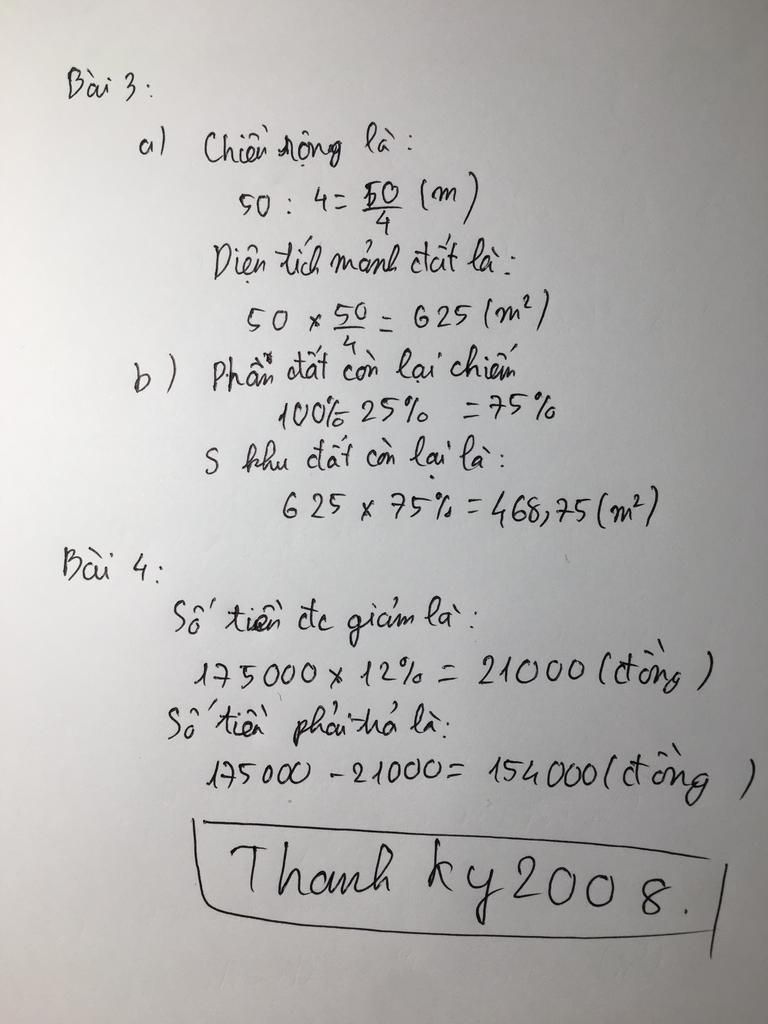 Bài 3:
a) Chiều rộng là:
50 : 4 = 50/4 (m)
Diện tích mảnh đất là:
50 × 50/4 = 625 (m²)
b) Phần đất còn lại chiếm
100% - 25% = 75%
S khu đất còn lại là:
625 × 75% = 468,75 (m²)
Bài 4:
Số tiền đc giảm là:
175000 × 12% = 21000 (đồng)
Số tiền phải trả là:
175000 - 21000 = 154000 (đồng)
Thanh ky2008.